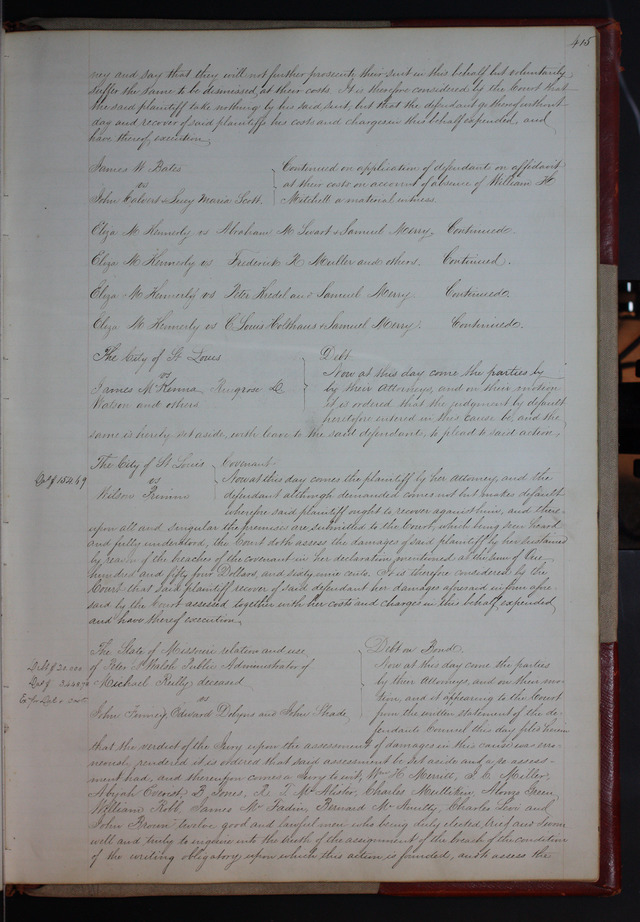 415
ney and say that they will not further prosecute their suit in this behalf but voluntarily
suffer the same to be dismissed, at their costs. It is therefore considered by the Court that
the said plaintiff take nothing by his said suit, but that the defendant go thereof without
day and recover of said plaintiff his costs and charges in this behalf expended, and
have thereof execution.
James W. Bates
vs
John Calvert & Lucy Maria Scott.
Continued on application of defendants on affidavit
at their costs on account of absence of William H.
Mitchell a material witness.
Eliza M Kennerly vs Abraham M & Samuel Merry. Continued.
Eliza M Kennerly vs Frederick K Muller and others. Continued.
Eliza M Kennerly vs Peter Kredel and Samuel Merry Continued.
Eliza M Kennerly vs C Louis Holthaus & Samuel Merry. Continued.
The City of St Louis
vs
James McKenna, Ringrose D.
Watson and others
Debt
Now at this day come the parties by
by their Attorneys, and on their motion
it is ordered that the judgment by default
heretofore entered in this cause be, and the
same is hereby set aside, with leave to the said defendants to plead to said action.
The City of St Louis
vs
Wilson Primm
Covenant.
Now at this day comes the plaintiff by her attorney, and the
defendant although demanded comes not but makes default
wherefore said plaintiff ought to recover against him, and there-
upon all and singular the premises are submitted to the Court, which being seen heard
and fully understood, the Court doth assess the damages of said plaintiff by her sustained
by reason of the breaches of the covenant in her declaration mentioned at the sum of One
hundred and fifty four Dollars and sixty nine cents. It is therefore considered by the
Court that said plaintiff recover of said defendant her damages aforesaid in form afore-
said by the Court assessed together with her costs and charges in this behalf expended,
and have thereof execution.
154.69
The State of Missouri relation and use
of Peter A Walsh Public Administrator of
Michael Reilly deceased
vs
John Finney, Edward Dobyns and John Shade
Debt $20.000
Debt on Bond.
Now at this day come the parties
by their Attorneys, and on their mo-
tion, and it appearing to the Court
from the written statement of the de-
fendants Council this day filed herein
that the verdict of the Jury upon the assessment of damages in this cause was erro-
neously rendered it is ordered that said assessment be set aside and a re assess-
ment had, and thereupon comes a Jury to wit, Wm H Merritt, Miller,
Abijah Everest, B Jones, R. T. McAlister, Charles Mullikin, Alonzo Green,
William Robb, James McFadin, Bernard McAnulty, Charles Levi and
John Brown, twelve good and lawful men who being duly elected, tried and sworn
well and truly to inquire into the truth of the assignment of the breach of the condition
of the writing obligatory upon which this action is founded, and to assess the